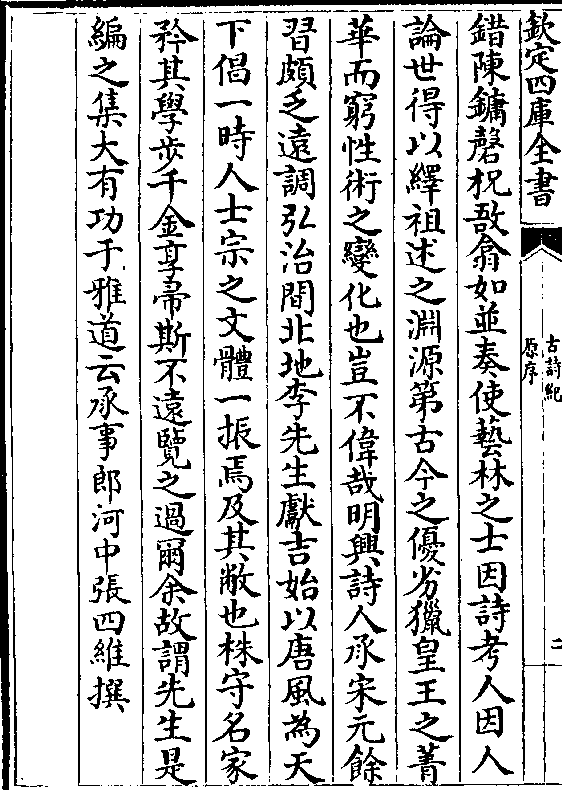 欽定四庫全書
古詩紀
原序
二
錯陳鏞磬柷敔翕如並奏使藝林之士因詩考人因人
論世得以繹祖述之淵源第古今之優劣獵皇王之菁
華而窮性術之變化也豈不偉哉明興詩人承宋元餘
習頗乏遠調弘治間北地李先生獻吉始以唐風為天
下倡一時人士宗之文體一振焉及其敝也株守名家
矜其學步千金享帚斯不遠覽之過爾余故謂先生是
編之集大有功于雅道云承事郎河中張四維撰